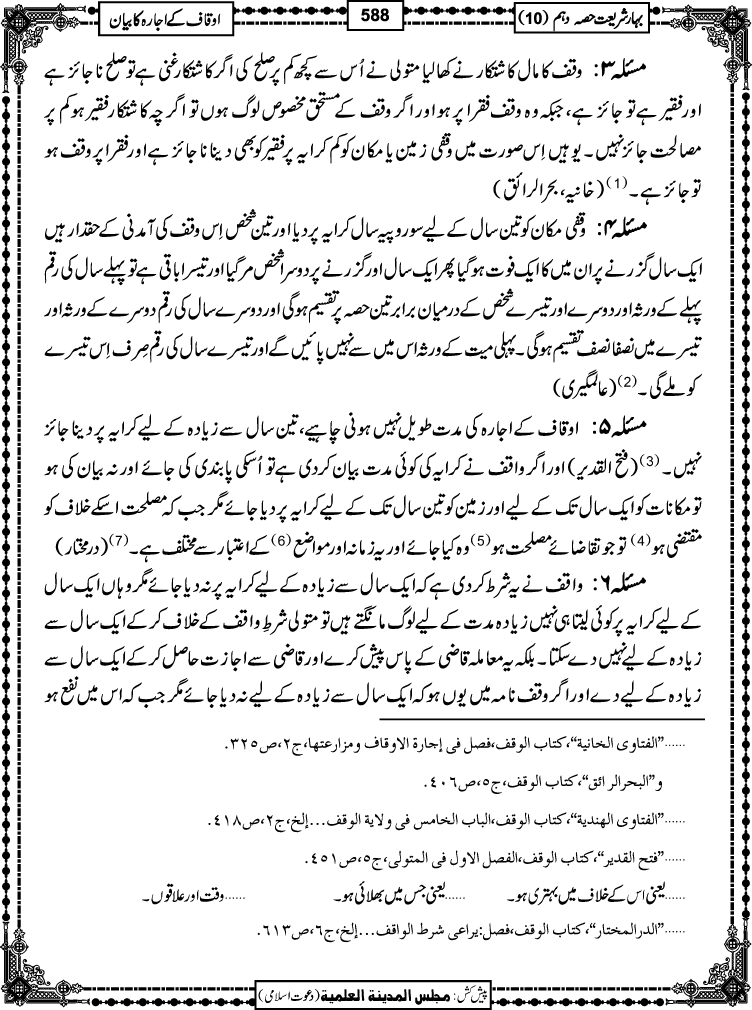 بہارِ شریعت حصہ دہم (10)
588
اوقاف کے اجارہ کا بیان
مسئلہ ۳: وقف کا مال کاشتکار نے کھا لیا متولی نے اُس سے کچھ کم پر صلح کی اگر کاشتکار غنی ہے تو صلح ناجائز ہے
اور فقیر ہے تو جائز ہے، جبکہ وہ وقف فقرا پر ہو اور اگر وقف کے مستحق مخصوص لوگ ہوں تو اگرچہ کاشتکار فقیر ہو کم پر
مصالحت جائز نہیں۔ یوہیں اِس صورت میں وقفی زمین یا مکان کو کم کرایہ پر فقیر کو بھی دینا ناجائز ہے اور فقرا پر وقف ہو
تو جائز ہے۔(1) (خانیہ، بحرالرائق)
مسئلہ ۴: وقفی مکان کو تین سال کے لیے سو روپیہ سال کرایہ پر دیا اور تین شخص اِس وقف کی آمدنی کے حقدار ہیں
ایک سال گزرنے پر ان میں کا ایک فوت ہوگیا پھر ایک سال اور گزرنے پر دوسرا شخص مرگیا اور تیسرا باقی ہے تو پہلے سال کی رقم
پہلے کے ورثہ اور دوسرے اور تیسرے شخص کے درمیان برابر تین حصہ پر تقسیم ہوگی اور دوسرے سال کی رقم دوسرے کے ورثہ اور
تیسرے میں نصفا نصف تقسیم ہوگی۔ پہلی میت کے ورثہ اس میں سے نہیں پائیں گے اور تیسرے سال کی رقم صِرف اِس تیسرے
کو ملے گی۔(2) (عالمگیری)
مسئلہ ۵: اوقاف کے اجارہ کی مدت طویل نہیں ہونی چاہیے، تین سال سے زیادہ کے لیے کرایہ پر دینا جائز
نہیں۔(3) (فتح القدیر) اور اگر واقف نے کرایہ کی کوئی مدت بیان کردی ہے تو اُسکی پابندی کی جائے اور نہ بیان کی ہو
تو مکانات کو ایک سال تک کے لیے اور زمین کو تین سال تک کے لیے کرایہ پر دیا جائے مگر جب کہ مصلحت اسکے خلاف کو
مقتضی ہو(4) تو جو تقاضائے مصلحت ہو(5) وہ کیا جائے اور یہ زمانہ اور مواضع(6) کے اعتبار سے مختلف ہے۔(7) (درمختار)
مسئلہ ۶: واقف نے یہ شرط کردی ہے کہ ایک سال سے زیادہ کے لیے کرایہ پر نہ دیا جائے مگر وہاں ایک سال
کے لیے کرایہ پر کوئی لیتا ہی نہیں زیادہ مدت کے لیے لوگ مانگتے ہیں تو متولی شرطِ واقف کے خلاف کرکے ایک سال سے
زیادہ کے لیے نہیں دے سکتا۔ بلکہ یہ معاملہ قاضی کے پاس پیش کرے اور قاضی سے اجازت حاصل کرکے ایک سال سے
زیادہ کے لیے دے اور اگر وقف نامہ میں یوں ہو کہ ایک سال سے زیادہ کے لیے نہ دیا جائے مگر جب کہ اس میں نفع ہو
......”الفتاوی الخانیة“، کتاب الوقف، فصل فی إجارة الاوقاف ومزارعتھا، ج۲، ص۳۲۵.
و”البحرالرائق“، کتاب الوقف، ج۵، ص۴۰۶.
......”الفتاوی الھندیة“، کتاب الوقف، الباب الخامس فی ولایة الوقف...إلخ، ج۲، ص۴۱۸.
......”فتح القدیر“، کتاب الوقف، الفصل الاول فی المتولی، ج۵، ص۴۵۱.
......یعنی اس کے خلاف میں بہتری ہو۔ ......یعنی جس میں بھلائی ہو۔ ......وقت اور علاقوں۔
......”الدرالمختار“، کتاب الوقف، فصل: یراعی شرط الواقف...إلخ، ج۶، ص۶۱۳.
پیش کش: مجلس المدینة العلمیة (دعوت اسلامی)